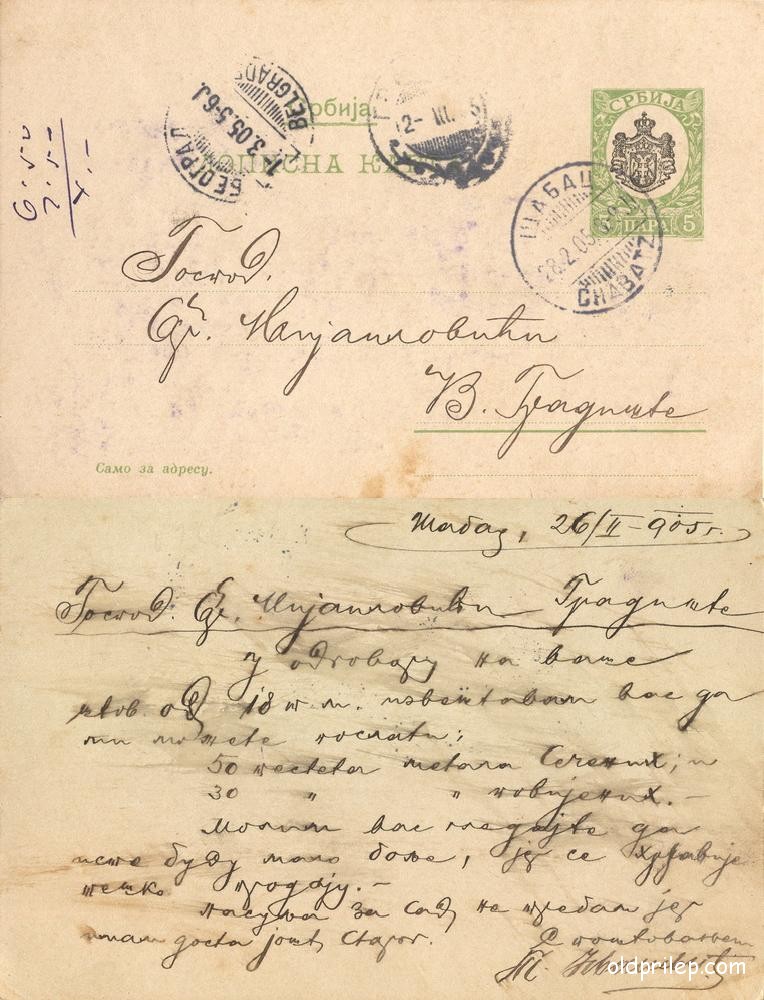 Србија
СРБИЈА
БЕОГРАД
1-3.05.5-6J.
BELGRADE
2- III.
5 ПАРА 5
ШАБАЦ
28.2.05
CHABATZ
6.50
Господ.
В. Градиште
Само за адресу.
Шабац, 26/II-905 г.
Господ. Градиште
У одговору на ваше
од 18 т. м. извештавам вас да
ми можете послати;
50 метала Сечених; и
30 " " повијених.-
Молим вас гледајте да
исте буду мало боље, јер се
тешко продају.-
за сад не требам јер
имам доста још старог. С поштовањем
oldprilep.com